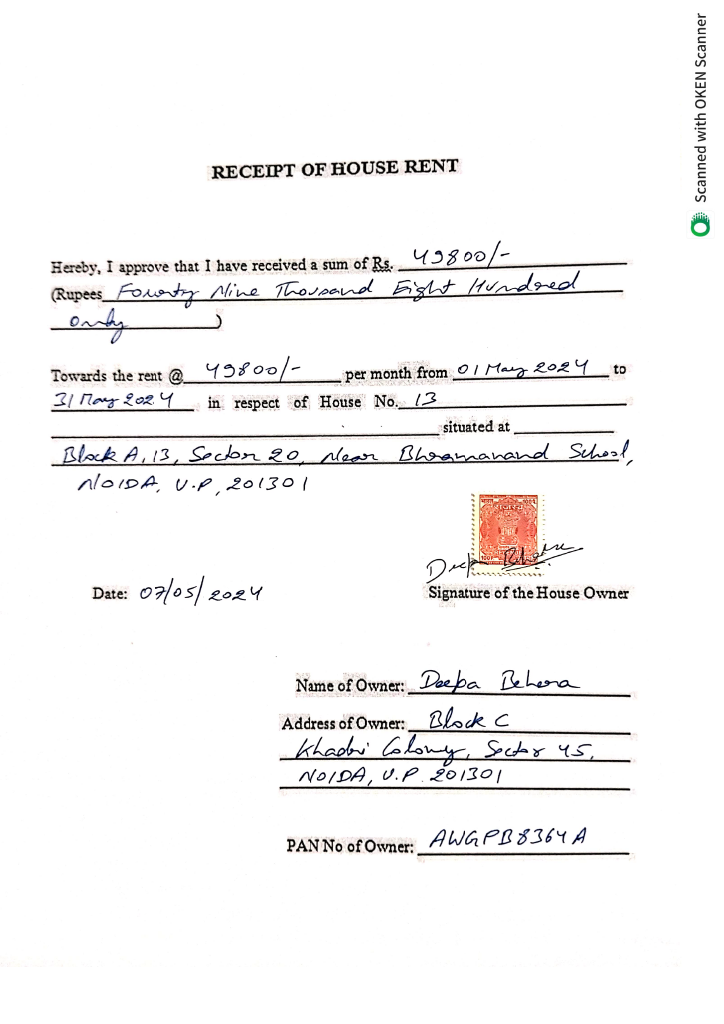 Scanned with OKEN Scanner
RECEIPT OF HOUSE RENT
Hereby, I approve that I have received a sum of Rs. 49800/-
(Rupees Fourty Nine Thousand Eight Hundred
only )
Towards the rent @ 49800/- per month from 01 May 2024 to
31 May 2024 in respect of House No. 13
situated at
Block A, 13, Sector 20, Near Bhramanand School,
NOIDA, U.P, 201301
Deepa Behera
Date: 07/05/2024 Signature of the House Owner
Name of Owner: Deepa Behera
Address of Owner: Block C
Khadri Colony, Sector 45,
NOIDA, U.P 201301
PAN No of Owner: AWGPB8364A